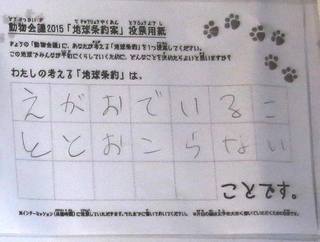 動物会議2015「地球条約案」投票用紙
きょうの「動物会議」に、あなたが考える「地球条約」を1つ提案してください。
この地球でみんなが平和にくらしていくために、どんなことを決めたらよいと思いますか？
わたしの考える「地球条約」は、
えがおでいるこ
ととおこらない
ことです。